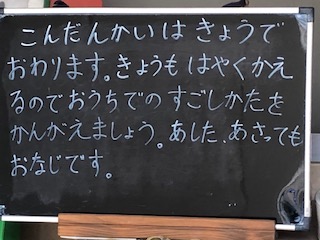 こんだんかいは きょうで
おわります。きょうも はやくかえ
るので おうちでの すごしかたを
かんがえましょう。あした、あさっても
おなじです。